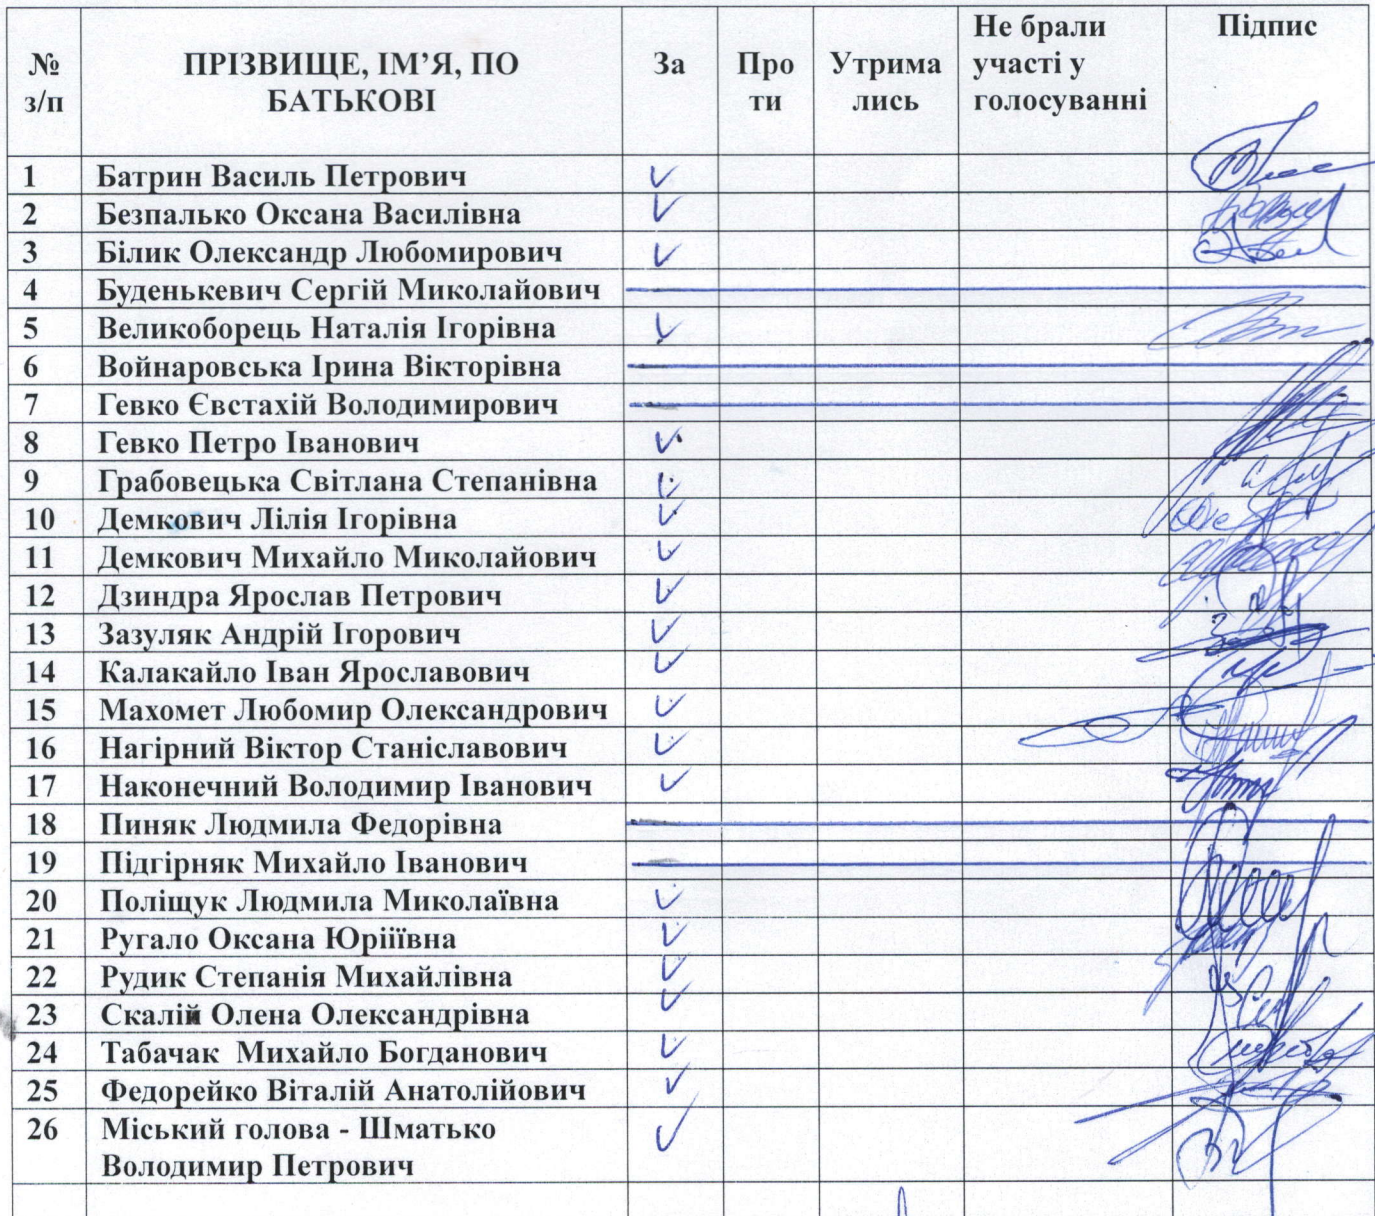 № з/п ПРІЗВИЩЕ, ІМ’Я, ПО БАТЬКОВІ За Про ти Утрима лись Не брали участі у голосуванні Підпис
1 Батрин Василь Петрович
2 Безпалько Оксана Василівна
3 Білик Олександр Любомирович
4 Буденькевич Сергій Миколайович
5 Великоборець Наталія Ігорівна
6 Войнаровська Ірина Вікторівна
7 Гевко Євстахій Володимирович
8 Гевко Петро Іванович
9 Грабовецька Світлана Степанівна
10 Демкович Лілія Ігорівна
11 Демкович Михайло Миколайович
12 Дзиндра Ярослав Петрович
13 Зазуляк Андрій Ігорович
14 Калакайло Іван Ярославович
15 Махомет Любомир Олександрович
16 Нагірний Віктор Станіславович
17 Наконечний Володимир Іванович
18 Пиняк Людмила Федорівна
19 Підгірняк Михайло Іванович
20 Поліщук Людмила Миколаївна
21 Ругало Оксана Юріїівна
22 Рудик Степанія Михайлівна
23 Скалій Олена Олександрівна
24 Табачак Михайло Богданович
25 Федорейко Віталій Анатолійович
26 Міський голова - Шматько
Володимир Петрович